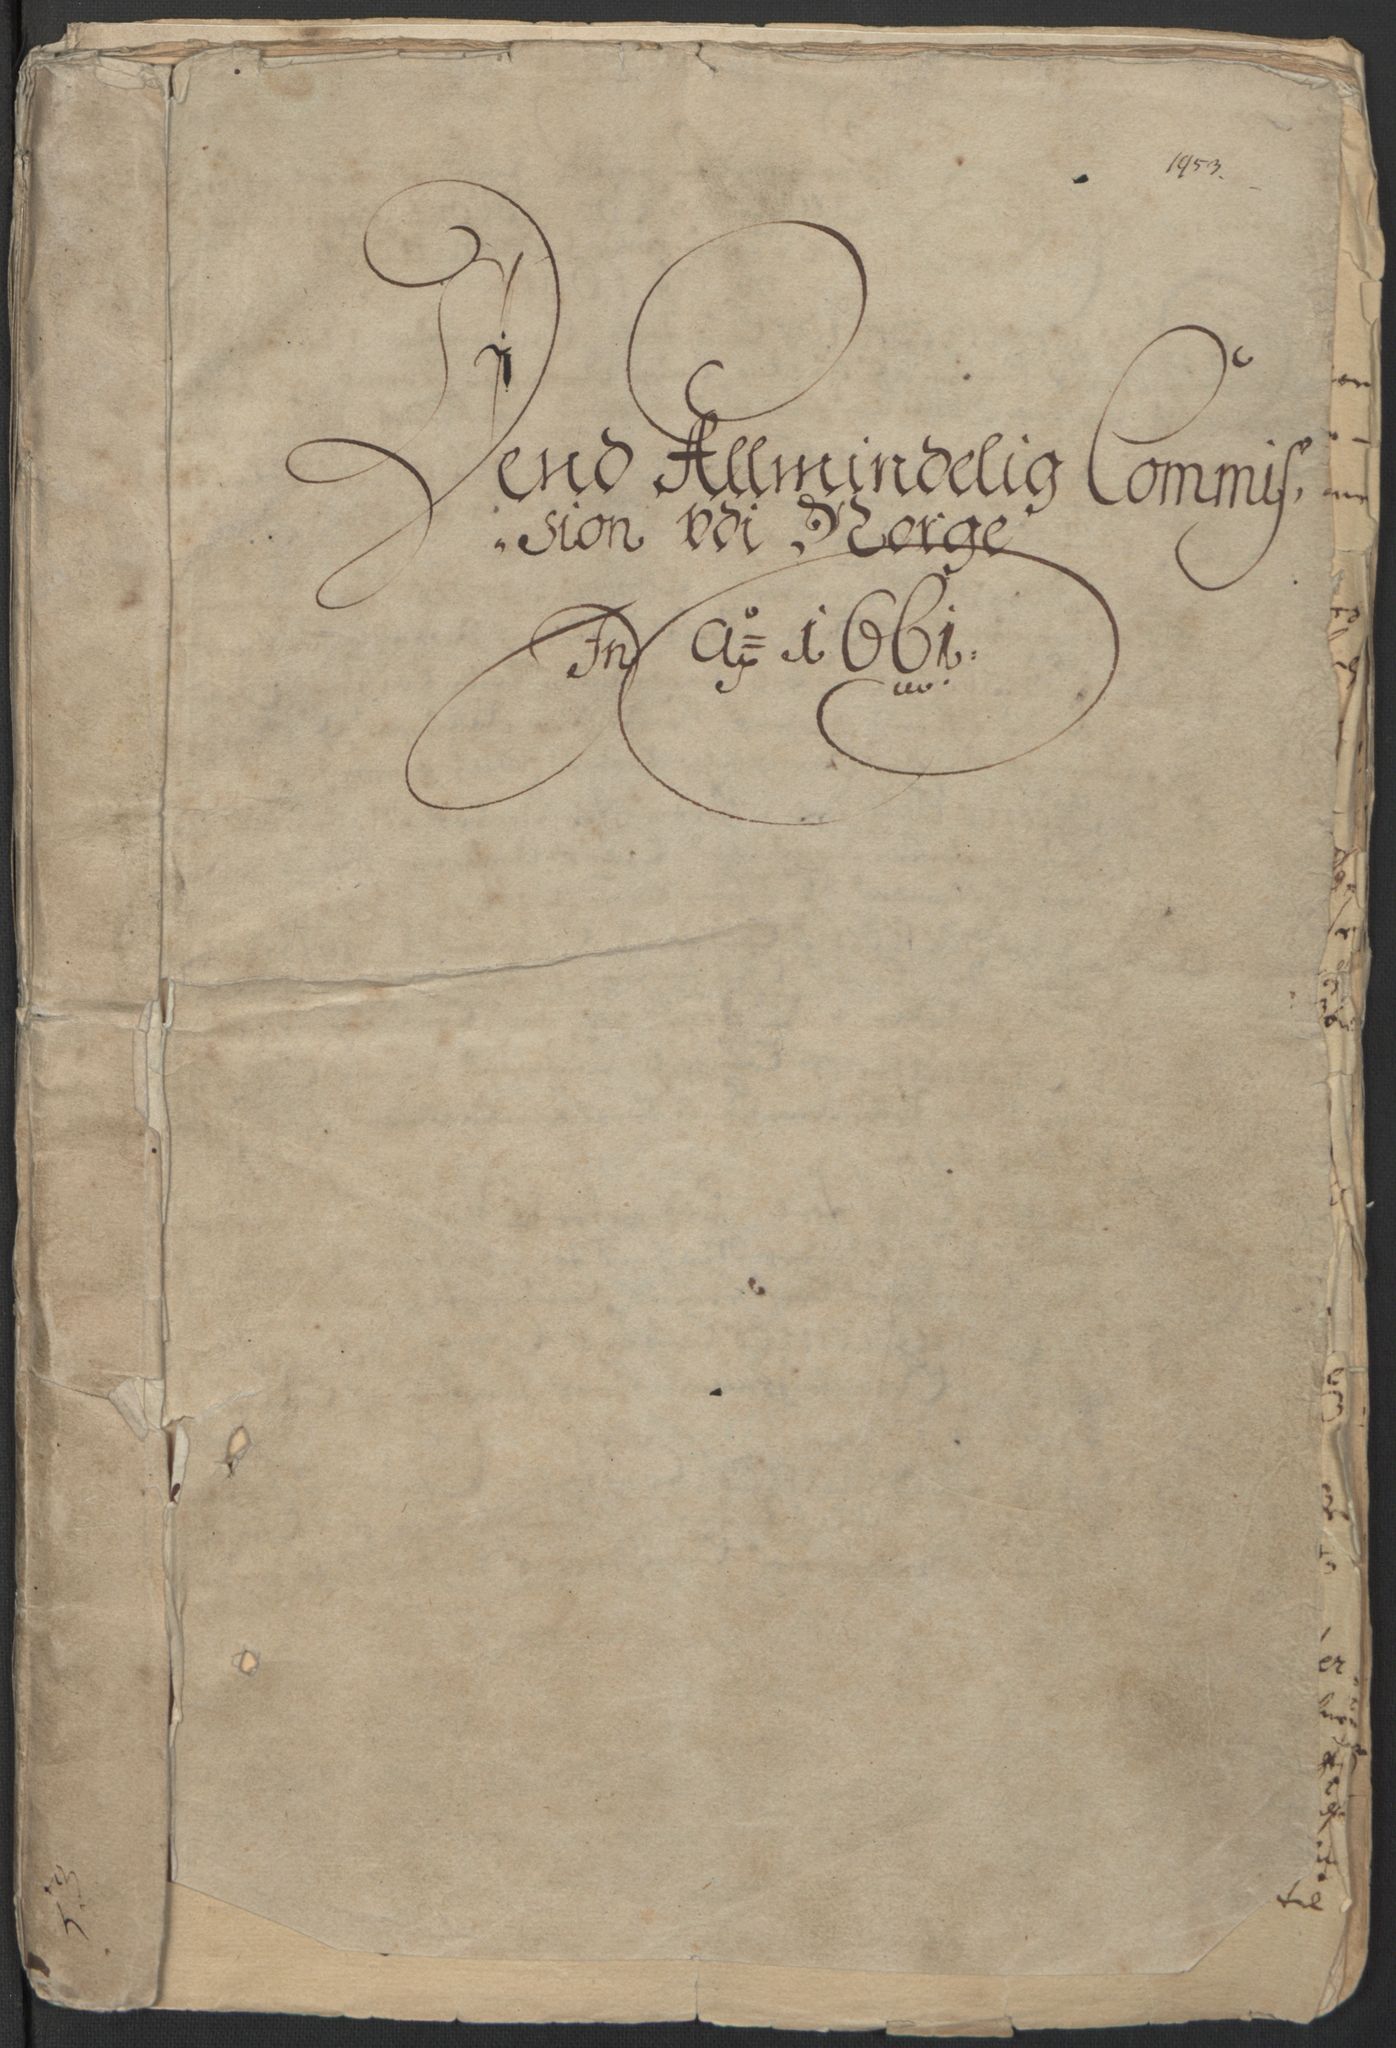 1953.
Dend Allmindelig Commis,
:sion vdi Norge
In Aº= 1661.
5.3
er